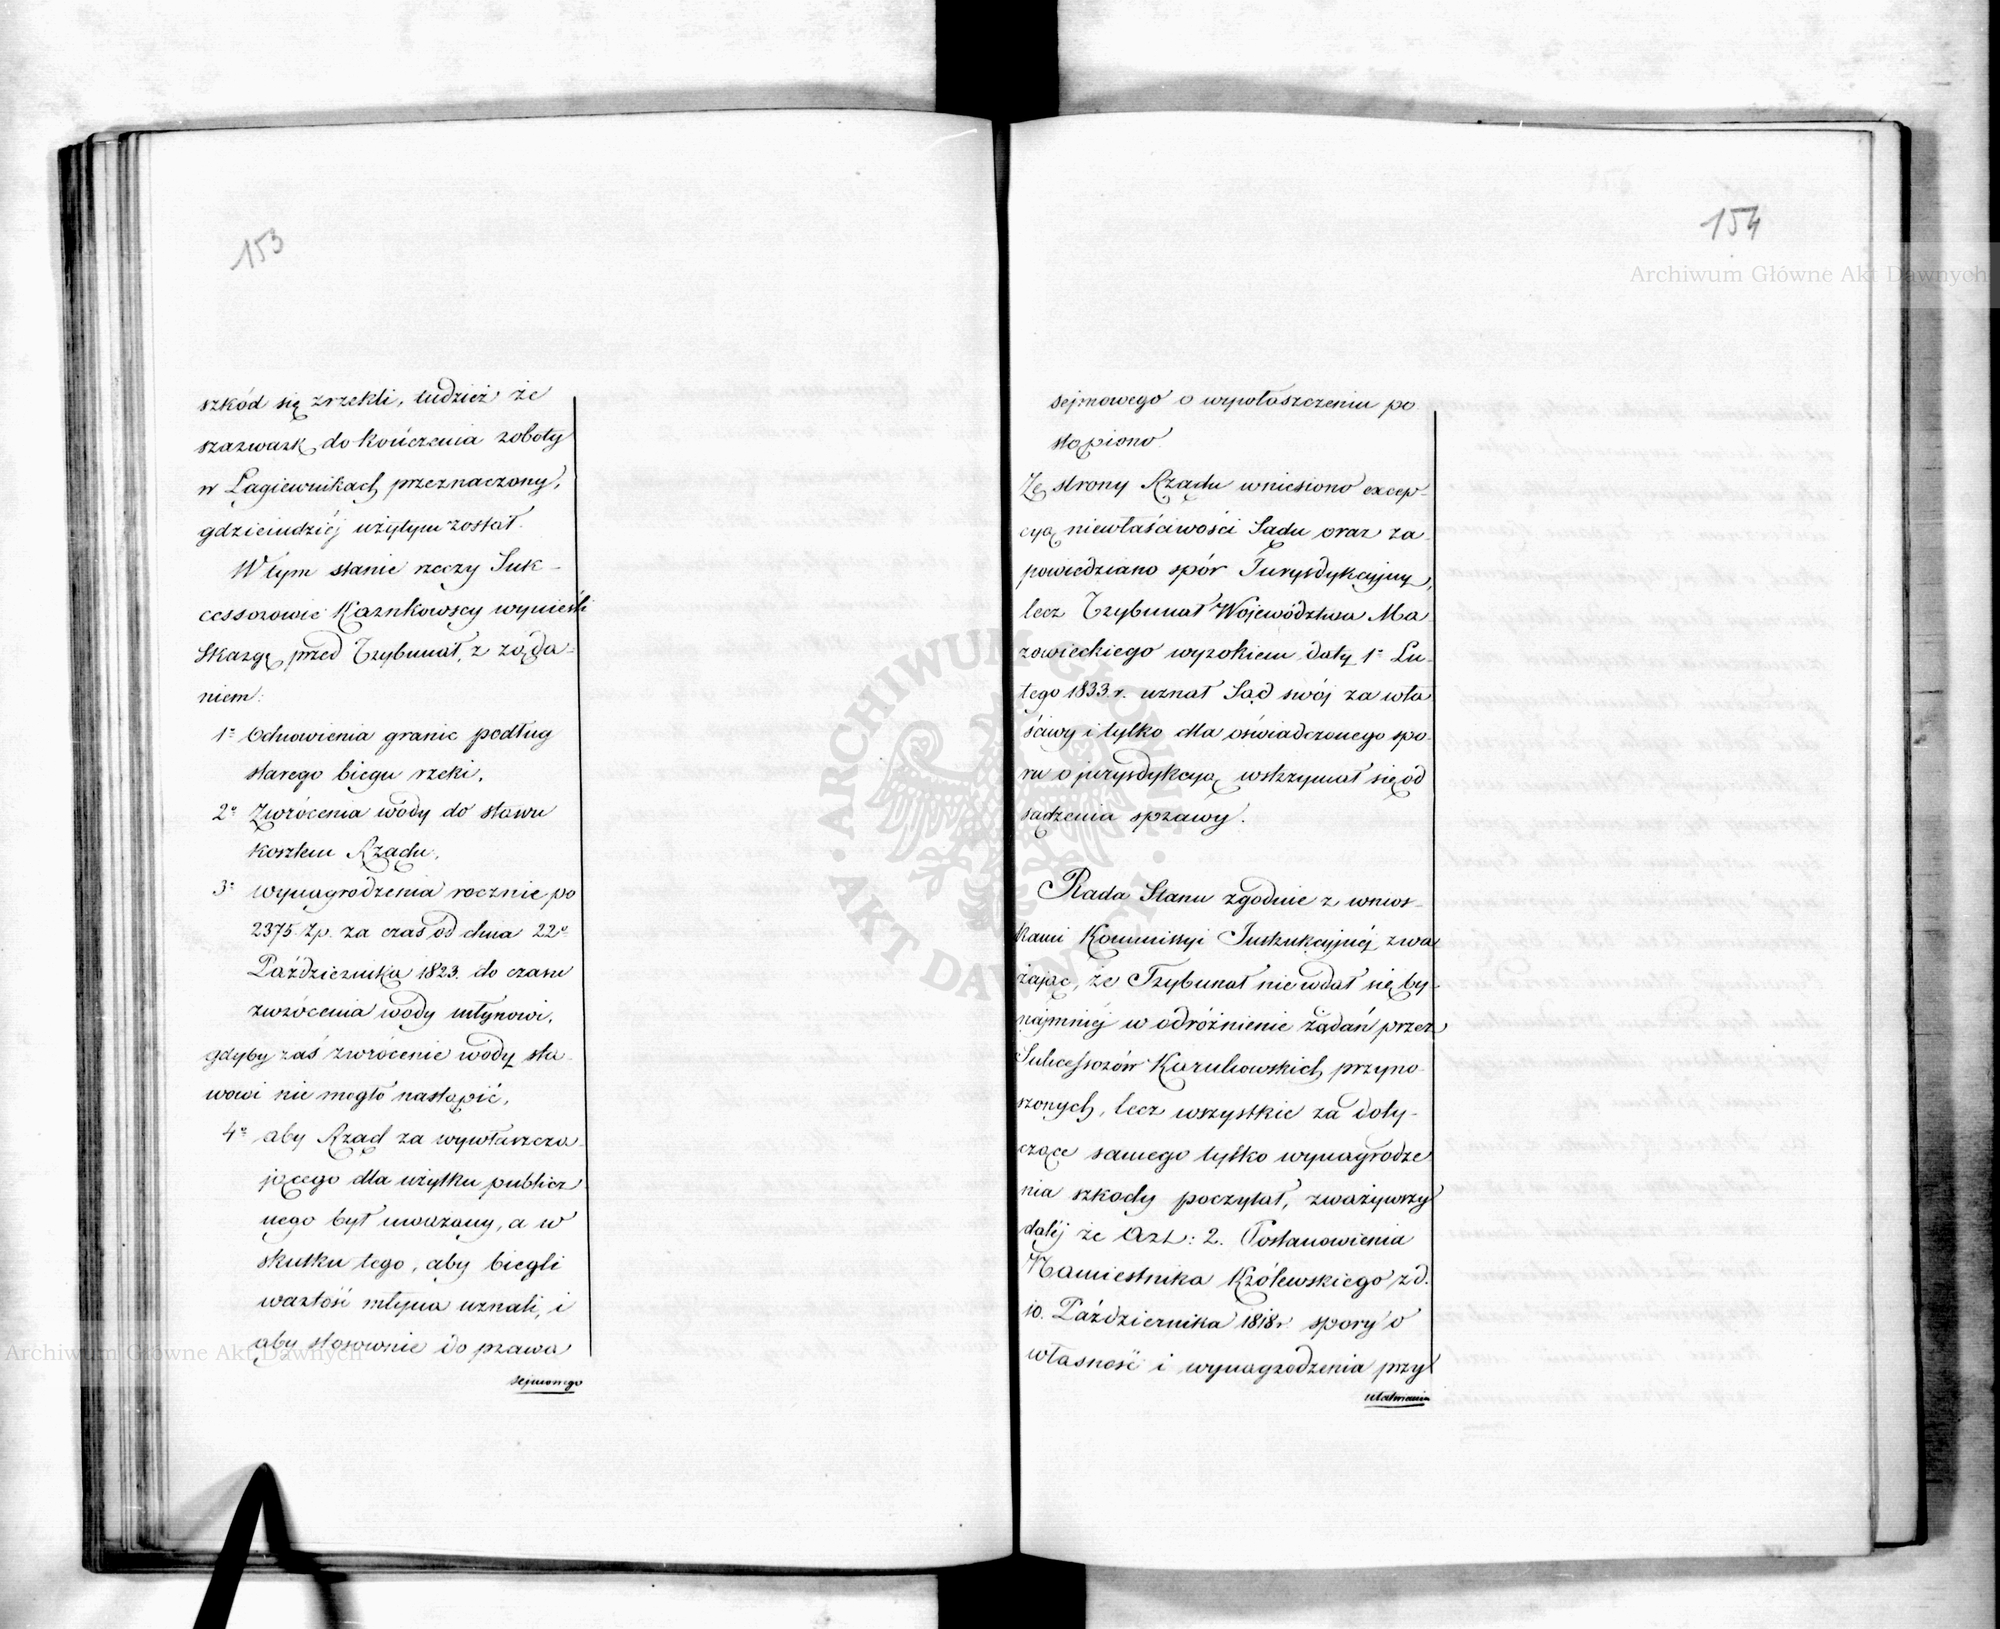 153
szkód się zrzekli, tudzież że
szarwark do kończenia roboty
w Łagiewnikach przeznaczony,
gdzieindziéj użytym został.
W tym stanie rzeczy Suk-
cessorowie Karnkowscy wynieśli
Skargę przed Trybunał, z żąda-
niem:
1º Odnowienia granic podług
starego biegu rzeki,
2º Zwrócenia wody do stawu
kosztem Rządu,
3º wynagrodzenia rocznie po
2375. zp. za czas od dnia 22º
Października 1823. do czasu
zwrócenia wody młynowi,
gdyby zaś zwrócenie wody sta-
wowi nie mogło nastąpić,
4º aby Rząd za wywłaszcza-
jącego dla użytku publicz-
nego był uważany, a w
skutku tego, aby biegli
wartość młyna uznali, i
aby stosownie do prawa
sejmowego
154
sejmowego o wywłaszczeniu po
stąpiono
Ze strony Rządu wniesiono excep-
cyą niewłaściwości Sądu oraz za-
powiedziano spór Jurysdykcyjny,
lecz Trybunał Województwa Ma-
zowieckiego wyrokiem daty 1º Lu-
tego 1833. r. uznał Sąd swój za wła
ściwy i tylko dla oświadczonego spo-
ru o jurysdykcyą wstrzymał się od
sądzenia sprawy.
Rada Stanu zgodnie z wnios-
kami Kommissyi Instrukcyjnéj zwa
żając, że Trybunał nie wdał się by-
najmniéj w odróżnienie żądań przez
Sukcessorów Karnkowskich przyno-
szonych, lecz wszystkie za doty-
czące samego tylko wynagrodze
nia szkody poczytał, zważywszy
daléj że Art: 2. Postanowienia
Namiestnika Królewskiego z d.
10. Października 1818 r. spory o
własność i wynagrodzenia przy
ułatwianiu
Archiwum Główne Akt Dawnych
Archiwum Główne Akt Dawnych
ARCHIWUM GŁÓWNE
AKT DAWNYCH